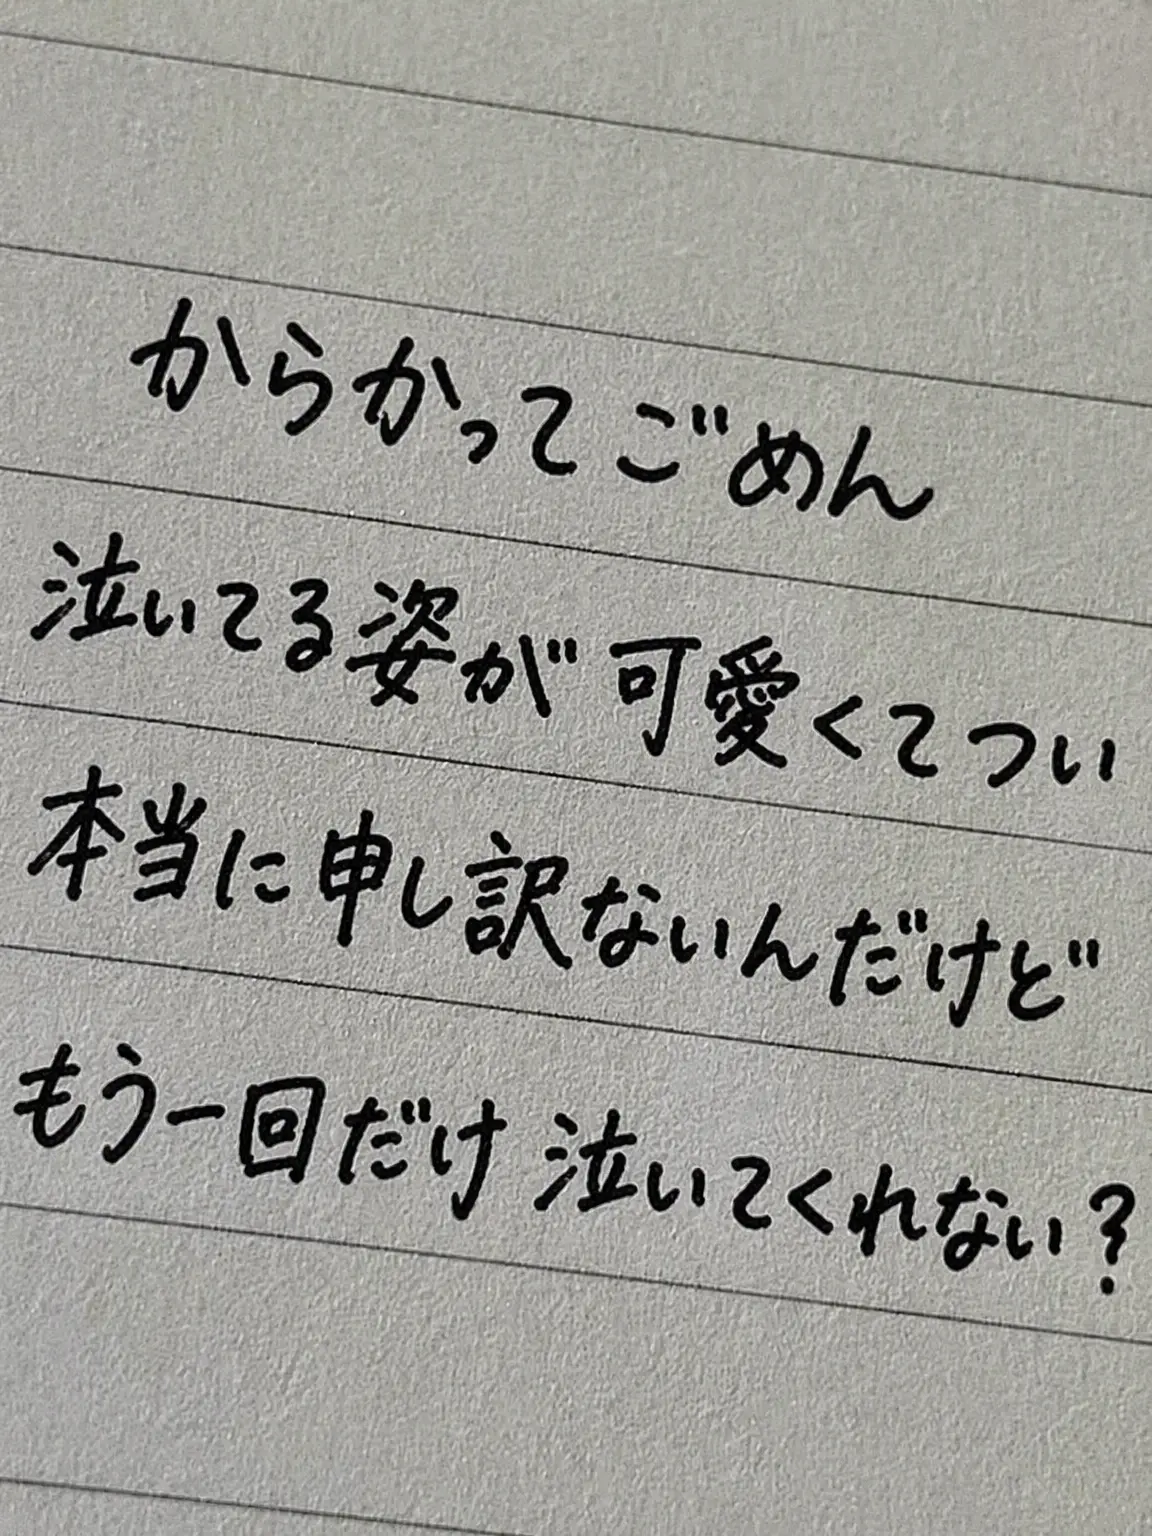 からかってごめん
泣いてる姿が可愛くてつい
本当に申し訳ないんだけど
もう一回だけ泣いてくれない?